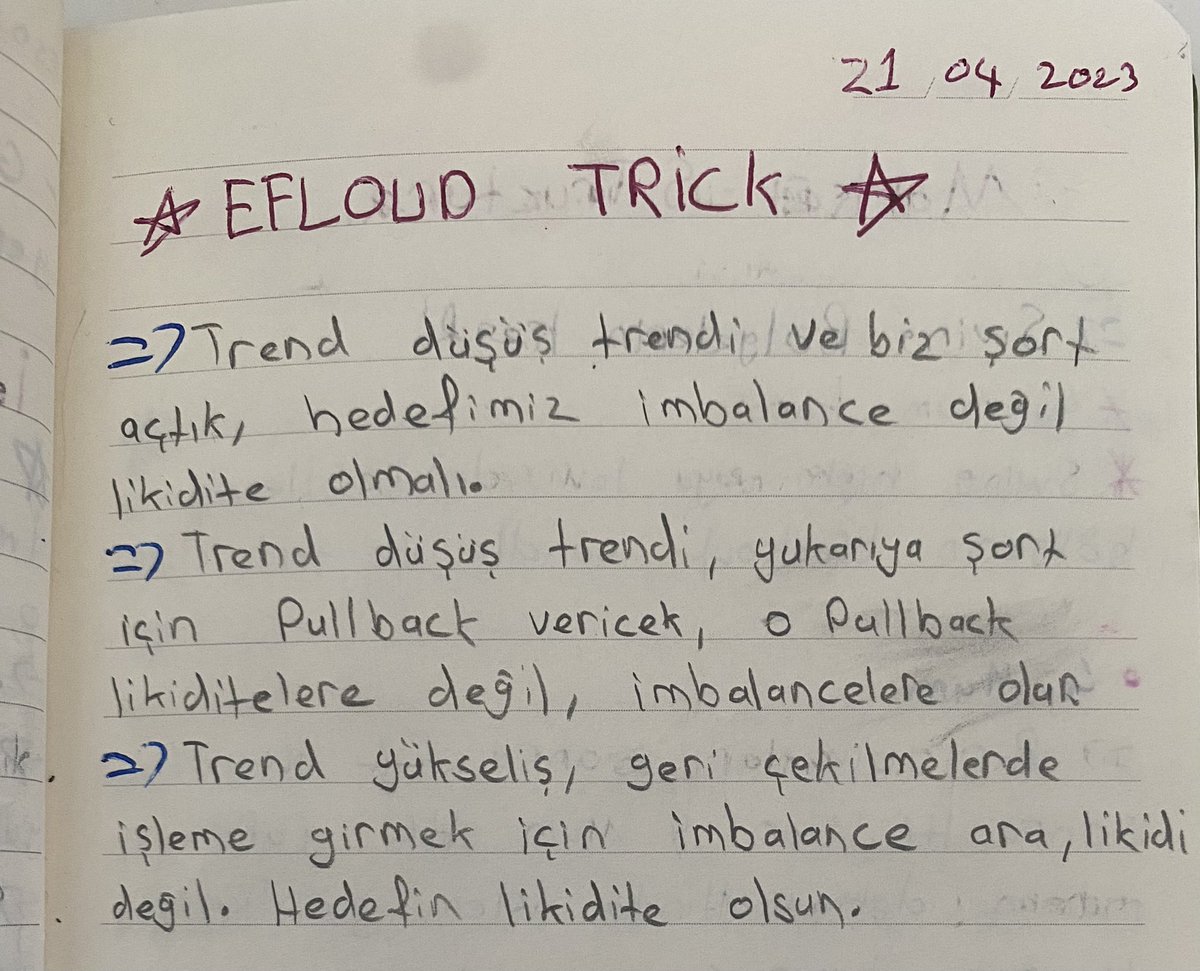 21/04/2023
☆ EFLOUD TRİCK ☆
=> Trend düşüş trendi ve biz şort
açtık, hedefimiz imbalance değil
likidite olmalı.
=> Trend düşüş trendi, yukarıya şort
için Pullback vericek, o Pullback
likiditelere değil, imbalancelere olur
=> Trend yükseliş, geri çekilmelerde
işleme girmek için imbalance ara, likidi
değil. Hedefin likidite olsun.